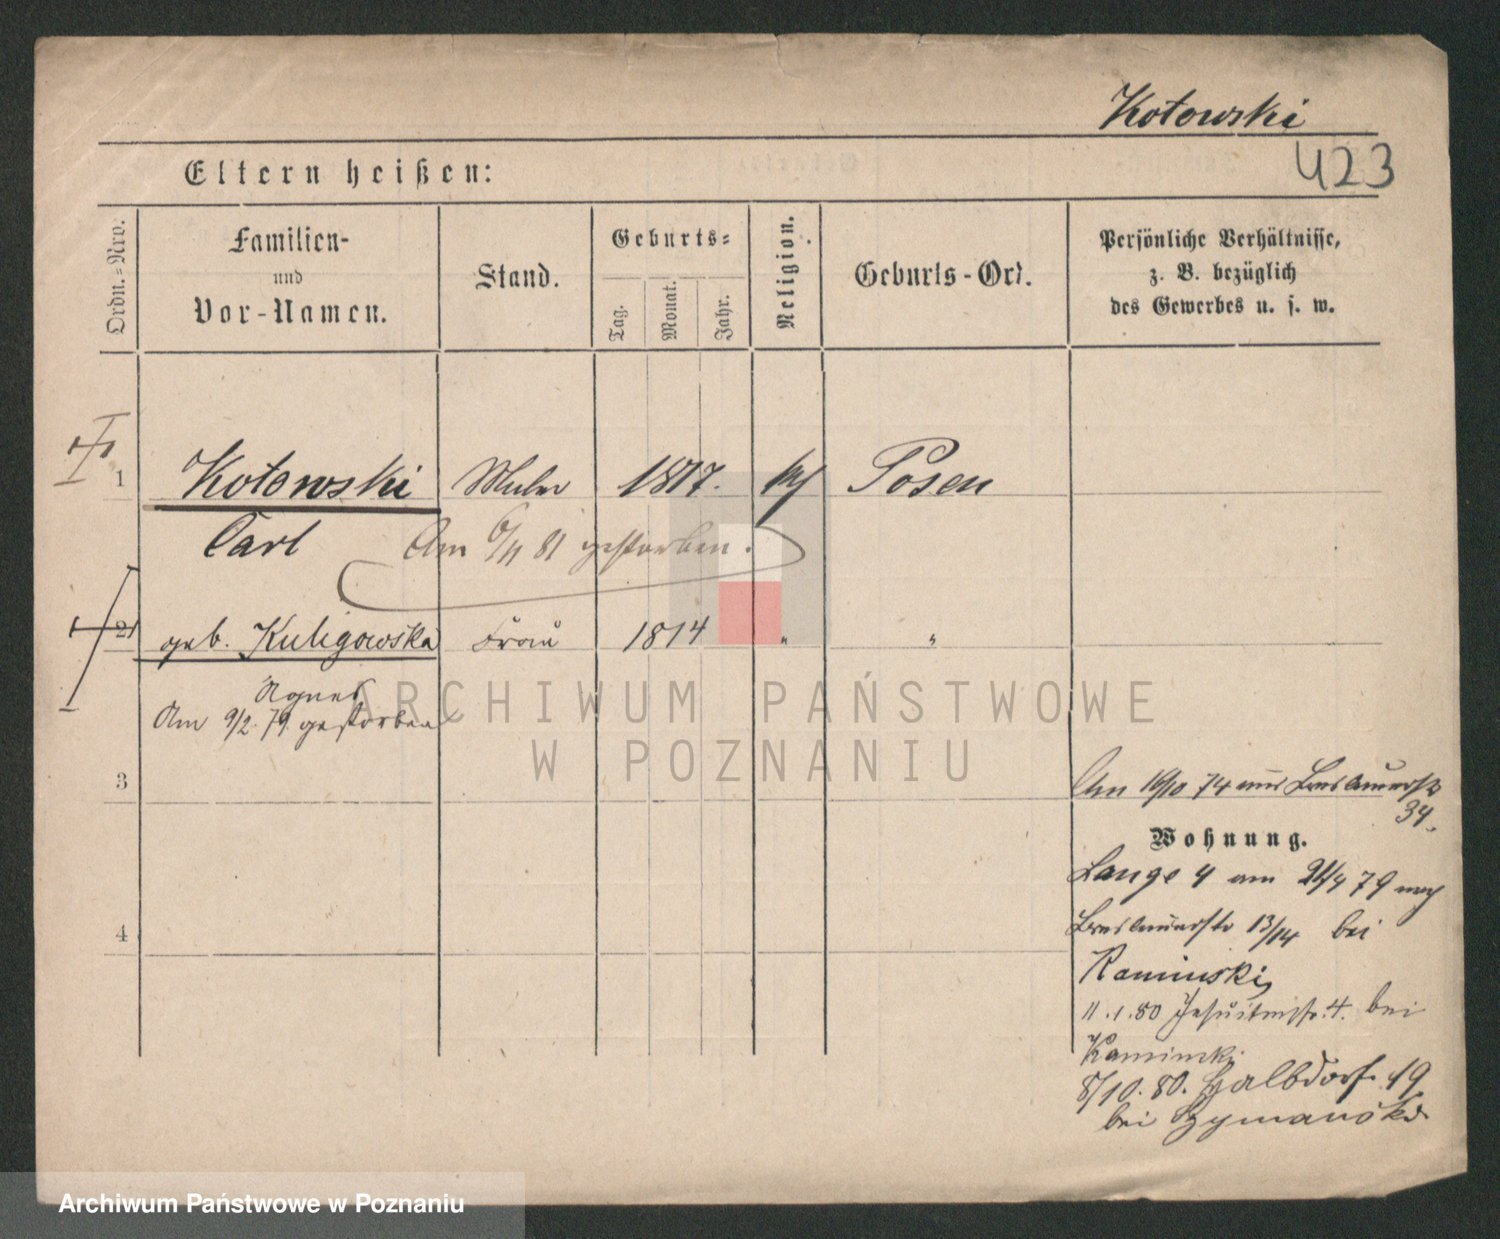 Kotowski
423
Eltern heißen:
Ordn.-Nro.
Familien-
und
Vor-Namen.
Stand.
Geburts-
Tag.
Monat.
Jahr.
Religion.
Geburts-Ort.
Persönliche Verhältnisse,
z. B. bezüglich
des Gewerbes u. s. w.
1 Kotowski Maler 1817. kth Posen
Carl Am 6/11 81 gestorben.
2 geb. Kuligowska Frau 1814 " "
Agnes
Am 9/2. 79. gestorben
3
Am 10/10 74 aus Breslauerstr
34.
Wohnung.
Lange 4 am 24/4 79 nach
4 Breslauerstr 13/14 bei
Kaminski,
11.1.80 Jesuitenstr. 4. bei
Kaminski
8/10.80. Halbdorf 19
bei Szymanska
ARCHIWUM PAŃSTWOWE
W POZNANIU
Archiwum Państwowe w Poznaniu